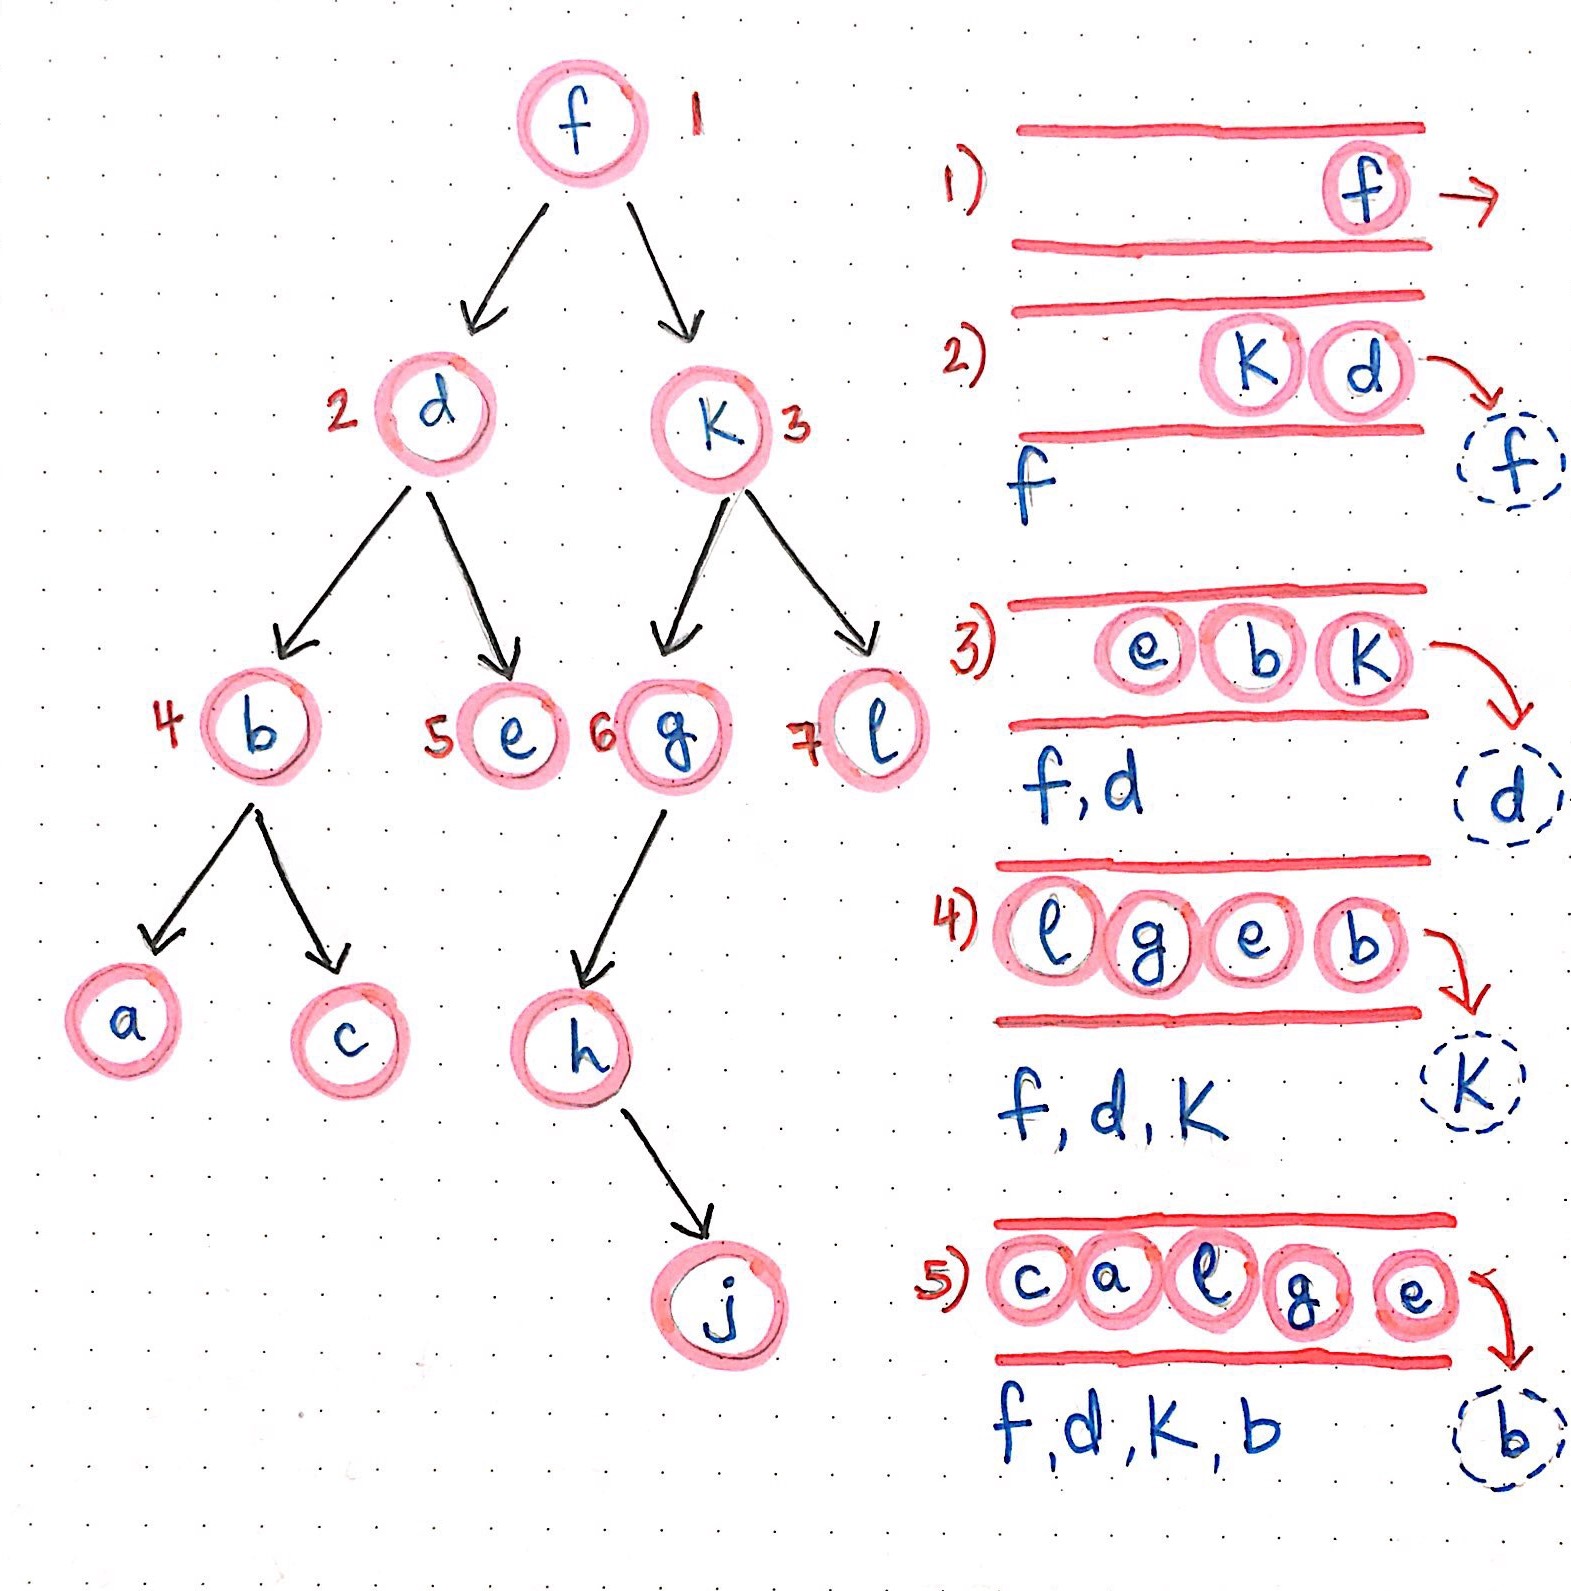 f 1
2 d K 3
4 b 5 e 6 g 7 l
a c h
j
1) f
2) K d
f
f
3) e b K
f, d
d
4) l g e b
K
f, d, K
5) c a l g e
f, d, K, b
b